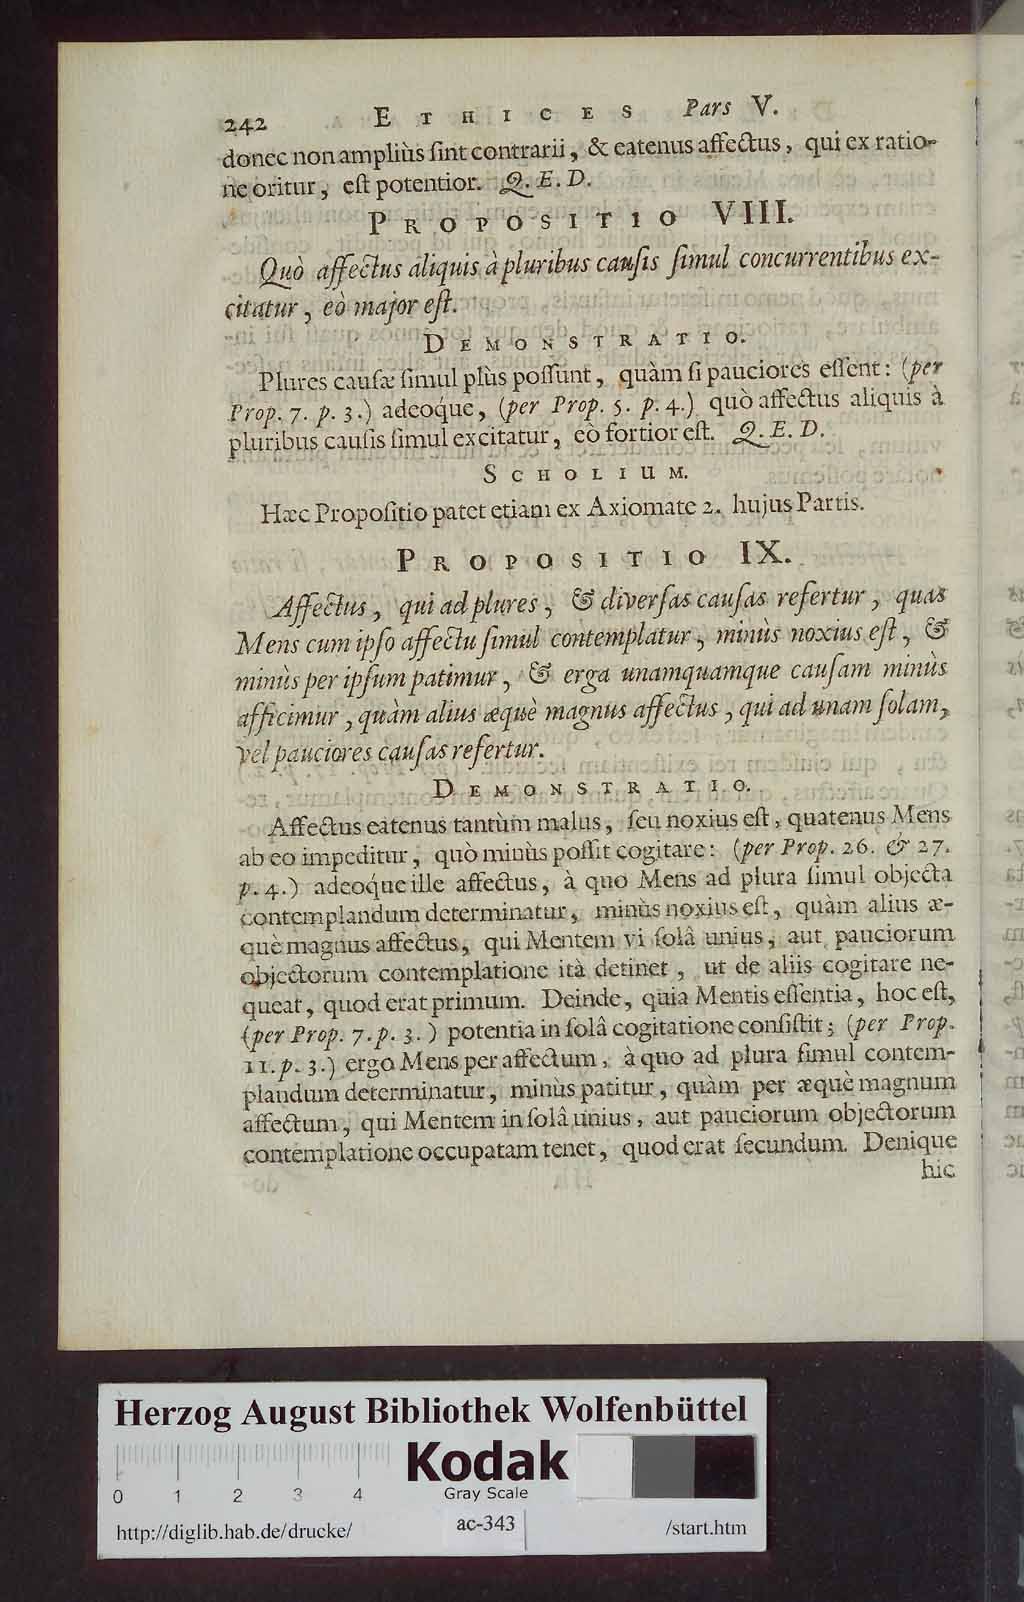 242 ETHICES Pars V.
donec non ampliùs ſint contrarii, & eatenus affectus, qui ex ratio-
ne oritur, eſt potentior. Q. E. D.
PROPOSITIO VIII.
Quò affectus aliquis à pluribus cauſis ſimul concurrentibus ex-
citatur, eò major eſt.
DEMONSTRATIO.
Plures cauſæ ſimul plùs poſſunt, quàm ſi pauciores eſſent: (per
Prop. 7. p. 3.) adeoq́ue, (per Prop. 5. p. 4.) quò affectus aliquis à
pluribus cauſis ſimul excitatur, eò fortior eſt. Q. E. D.
SCHOLIUM.
Hæc Propoſitio patet etiam ex Axiomate 2. hujus Partis.
PROPOSITIO IX.
Affectus, qui ad plures, & diverſas cauſas refertur, quas
Mens cum ipſo affectu ſimul contemplatur, minùs noxius eſt, &
minùs per ipſum patimur, & erga unamquamque cauſam minùs
afficimur, quàm alius æquè magnus affectus, qui ad unam ſolam,
vel pauciores cauſas refertur.
DEMONSTRATIO.
Affectus eatenus tantùm malus, ſeu noxius eſt, quatenus Mens
ab eo impeditur, quò minùs poſſit cogitare: (per Prop. 26. & 27.
p. 4.) adeoq́ue ille affectus, à quo Mens ad plura ſimul objecta
contemplandum determinatur, minùs noxius eſt, quàm alius æ-
què magnus affectus, qui Mentem vi ſolâ unius, aut pauciorum
objectorum contemplatione ità detinet, ut de aliis cogitare ne-
queat, quod erat primum. Deinde, quia Mentis eſſentia, hoc eſt,
(per Prop. 7. p. 3.) potentia in ſolâ cogitatione conſiſtit; (per Prop.
11. p. 3.) ergo Mens per affectum, à quo ad plura ſimul contem-
plandum determinatur, minùs patitur, quàm per æquè magnum
affectum, qui Mentem in ſolâ unius, aut pauciorum objectorum
contemplatione occupatam tenet, quod erat ſecundum. Denique
hic
Herzog August Bibliothek Wolfenbüttel
Kodak
Gray Scale
0 1 2 3 4
http://diglib.hab.de/drucke/ ac-343 /start.htm